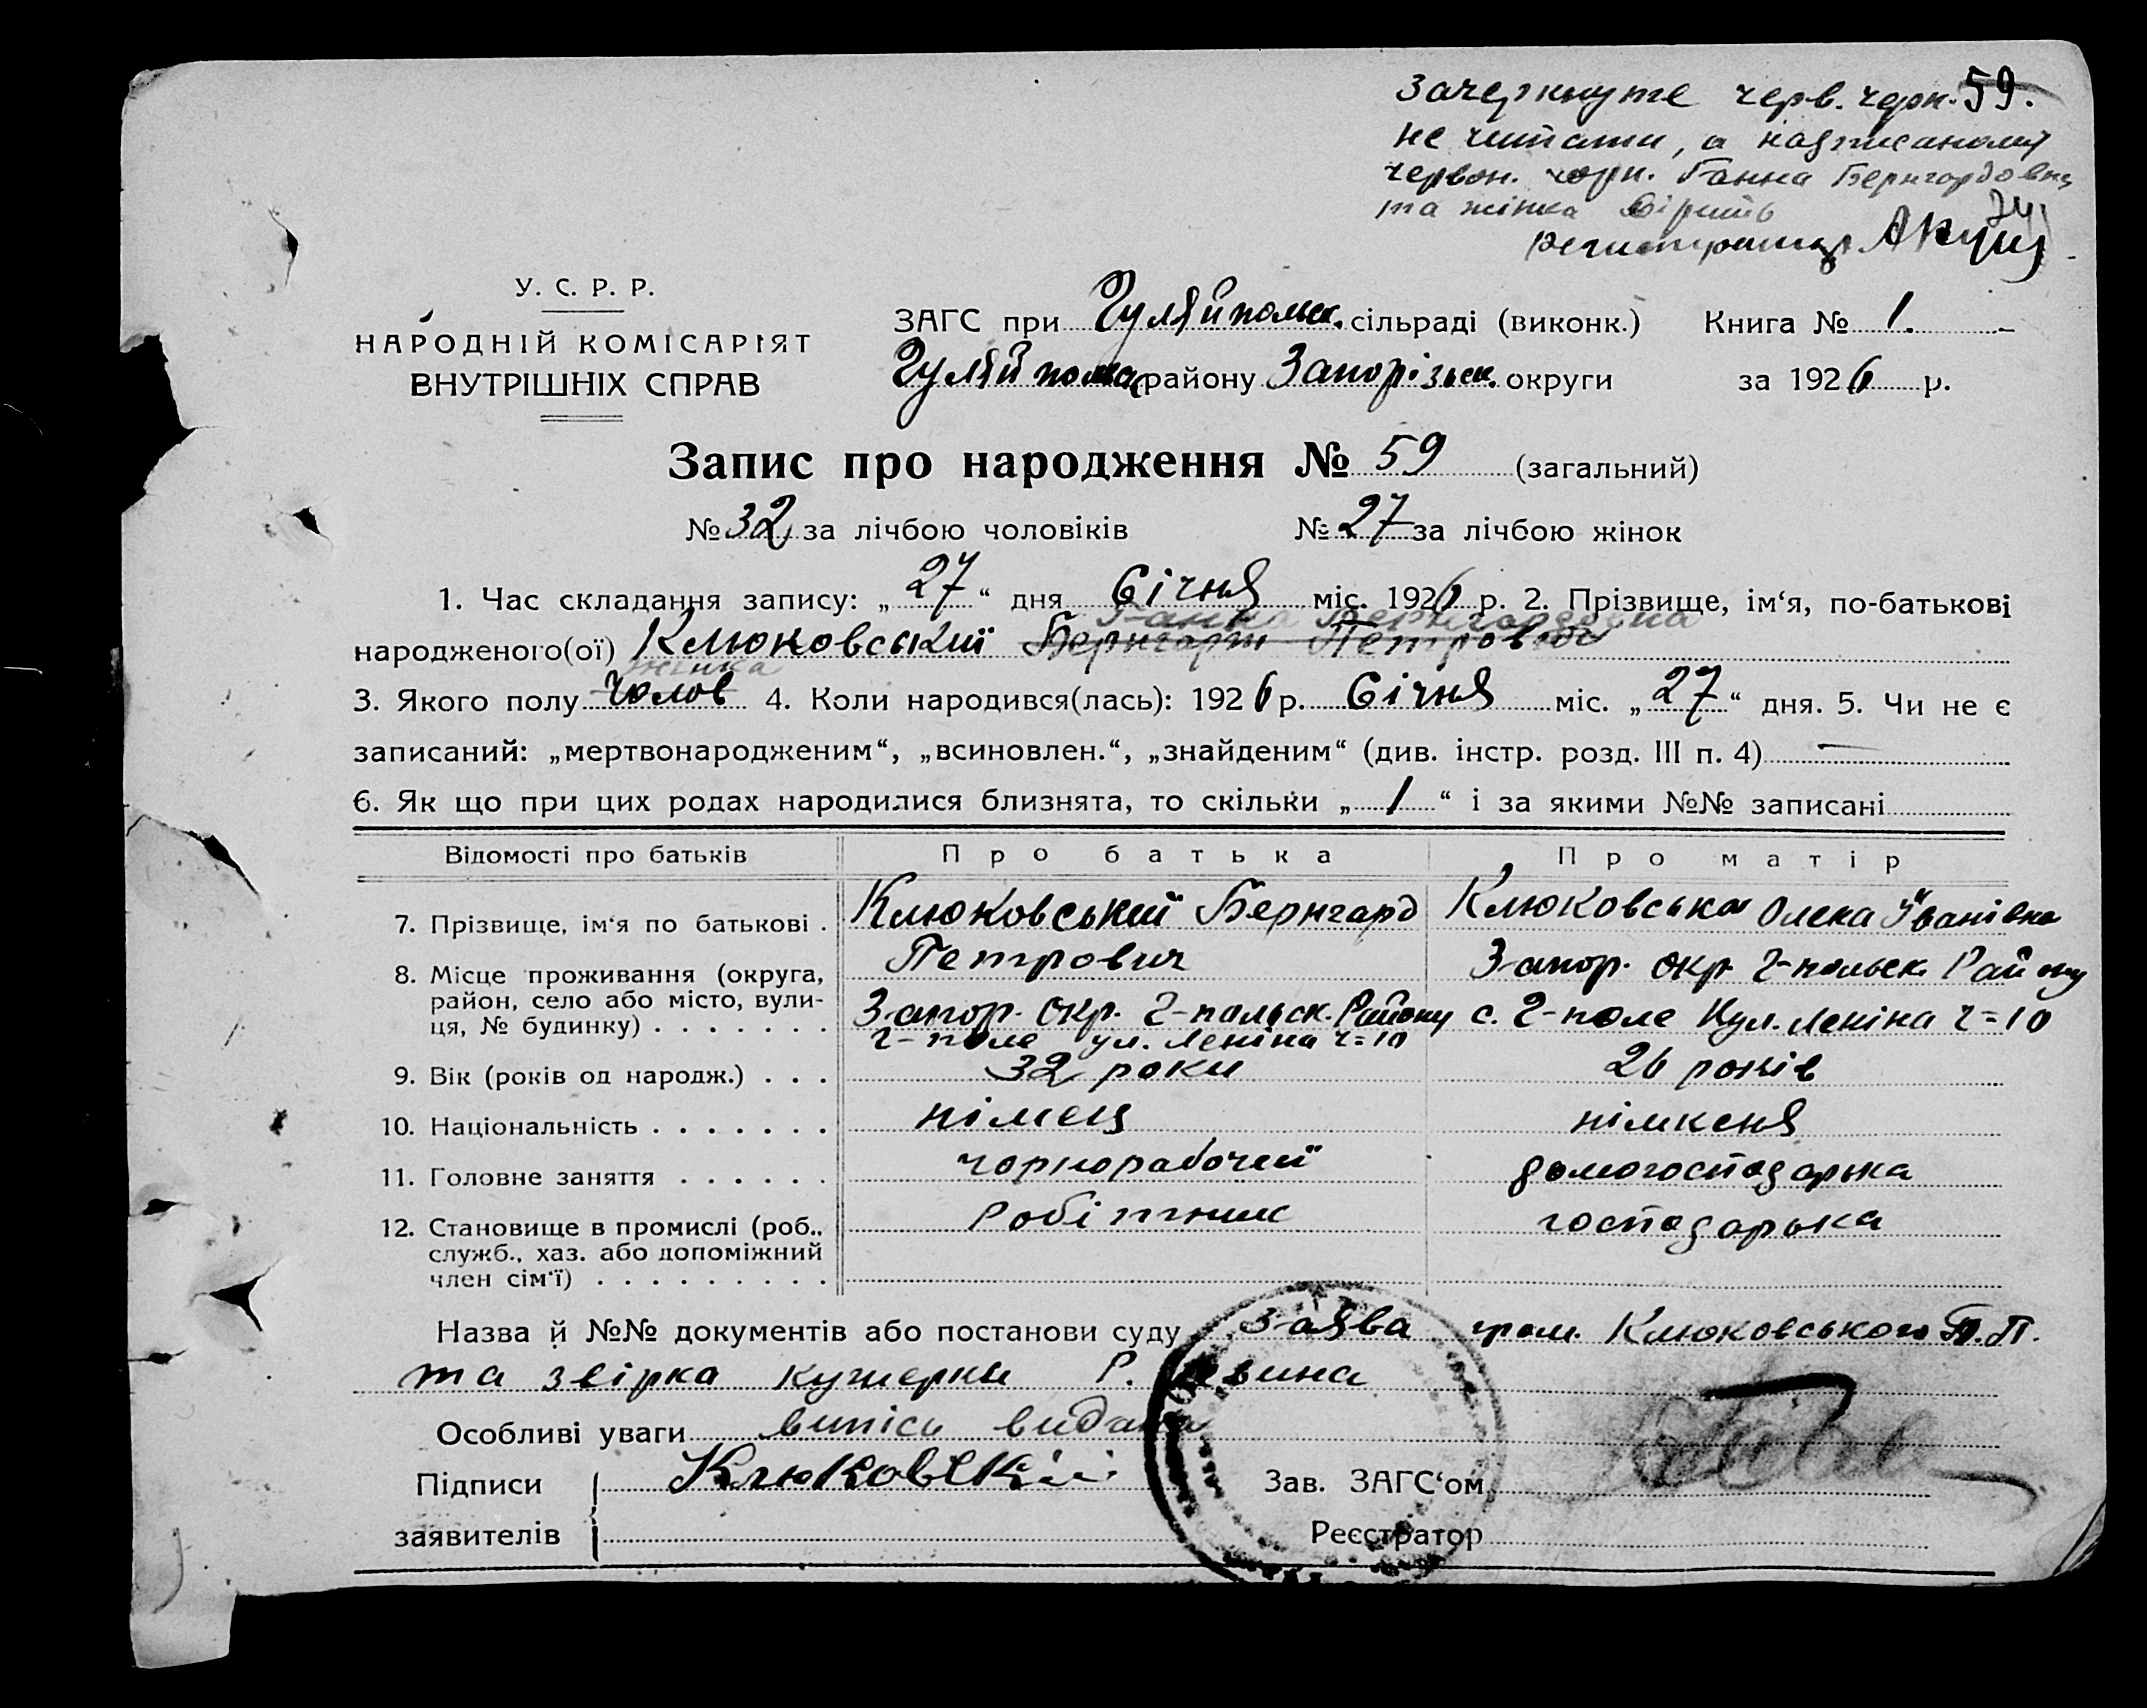 зачеркнуте черв. черн. 59.
не читати, а надписаному
червон. чорн. Ганна Бернгардовна
та жінка вірить
регистратор
У. С. Р. Р.
НАРОДНІЙ КОМІСАРІЯТ
ВНУТРІШНІХ СПРАВ
ЗАГС при Гуляйпольск. сільраді (виконк.) Книга № 1.
Гуляйпольск району Запорізьк. округи за 1926 р.
Запис про народження № 59 (загальний)
№ 32 за лічбою чоловіків № 27 за лічбою жінок
1. Час складання запису: „27“ дня Січня міс. 1926 р. 2. Прізвище, ім‘я, по-батькові
Ганна Бернгардовна
народженого(ої) Клюковський Бернгарт Петрович
жінка
3. Якого полу Чолов 4. Коли народився(лась): 1926 р. Січня міс. „27“ дня. 5. Чи не є
записаний: „мертвонародженим“, „всиновлен.“, „знайденим“ (див. інстр. розд. III п. 4) —
6. Як що при цих родах народилися близнята, то скільки „/“ і за якими №№ записані
Відомості про батьків Про батька Про матір
7. Прізвище, ім‘я по батькові . Клюковський Бернгард Клюковська Олека Іванівна
Петрович
8. Місце проживання (округа, Запор. окр. Г-польск. Району
район, село або місто, вули- Запор. окр. Г-польск. Району с. Г-поле вул. Леніна ч=10
ця, № будинку) . . . . . . . Г-поле ул. Леніна ч=10
9. Вік (років од народж.) . . . 32 роки 26 років
10. Національність . . . . . . . німець німкеня
11. Головне заняття . . . . . . чорнорабочий домогосподарька
12. Становище в промислі (роб., Робітник господарька
служб., хаз. або допоміжний
член сім‘ї) . . . . . . . . . .
Назва й №№ документів або постанови суду Заява гром. Клюковського Б.П.
та звірка кушерки Р. Левина
Особливі уваги випісь видана
Підписи Клюковскій Зав. ЗАГС‘ом
заявителів Реєстратор